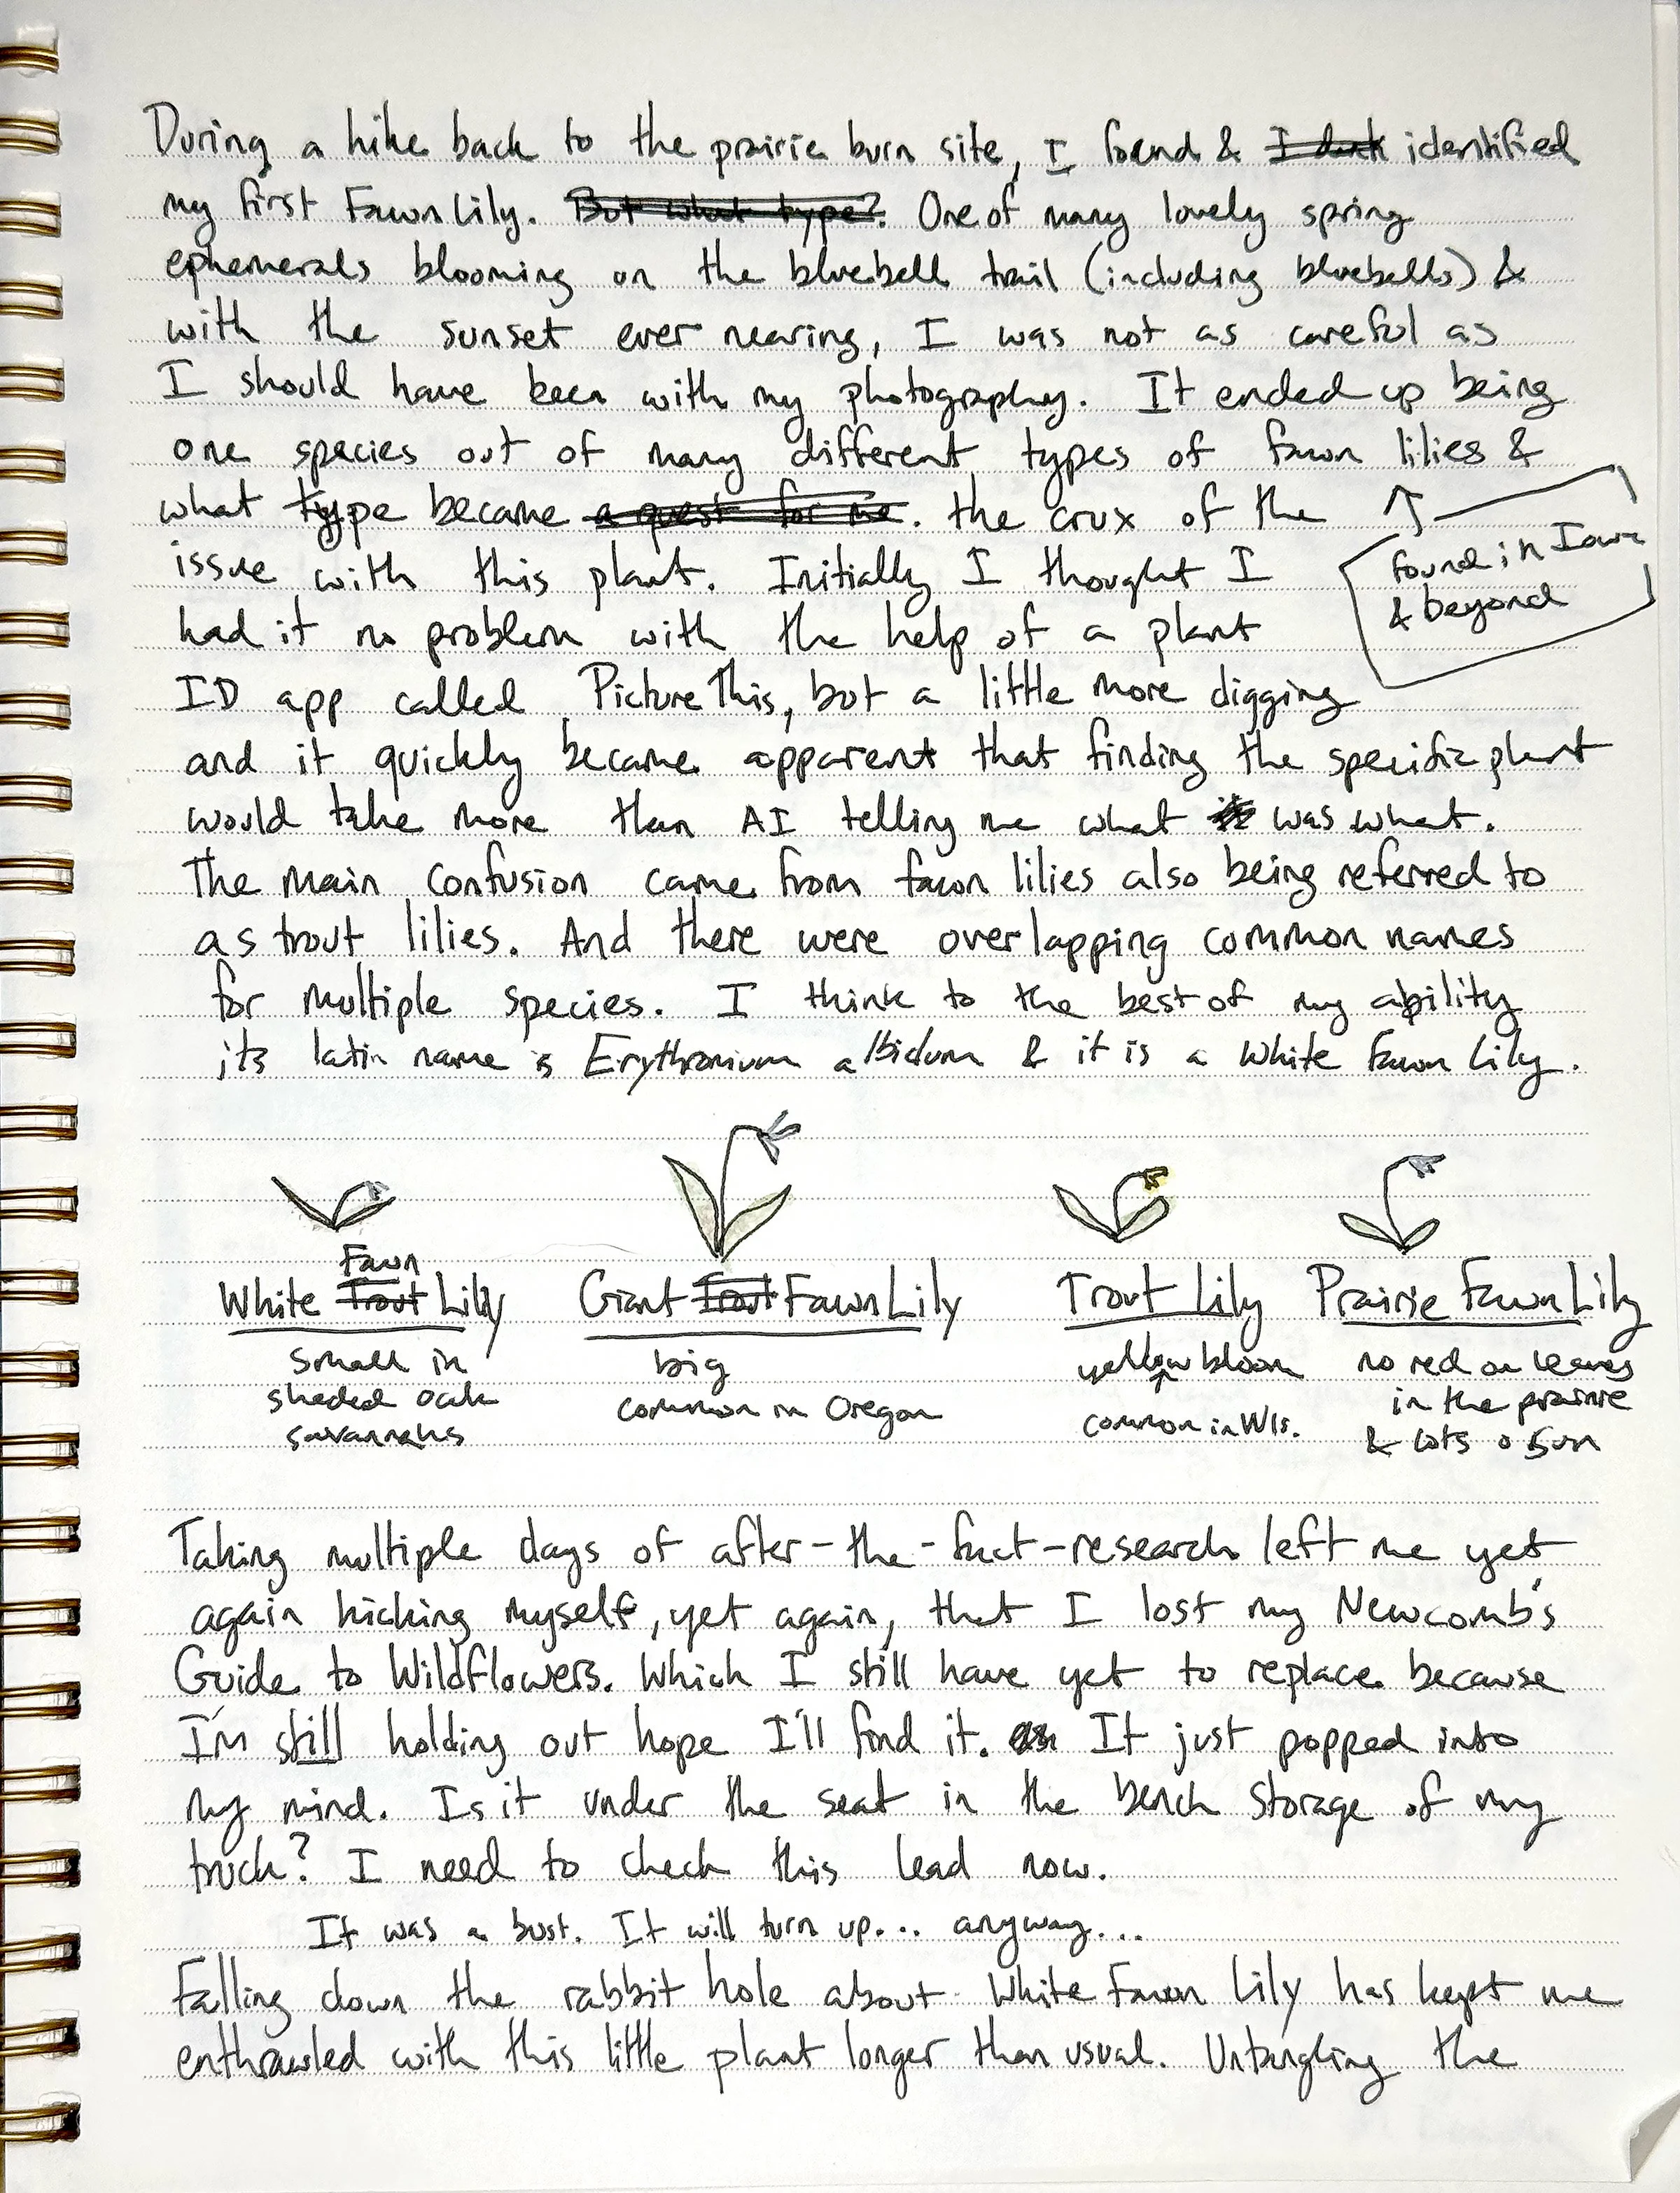 During a hike back to the prairie burn site, I found & identified
my first Fawn Lily. But what type? One of many lovely spring
ephemerals blooming on the bluebell trail (including bluebells) &
with the sunset ever nearing, I was not as careful as
I should have been with my photography. It ended up being
one species out of many different types of fawn lilies &
what type became a quest for me. the crux of the
found in Iowa
& beyond
issue with this plant. Initially I thought I
had it no problem with the help of a plant
ID app called PictureThis, but a little more digging
and it quickly became apparent that finding the specific plant
would take more than AI telling me what it was what.
The main confusion came from fawn lilies also being referred to
as trout lilies. And there were overlapping common names
for multiple species. I think to the best of my ability
its latin name is Erythronium albidum & it is a White Fawn Lily.
Fawn
White Trout Lily
Giant Trout Fawn Lily
Trout Lily
Prairie Fawn Lily
small in
shaded oak
savannahs
big
common in Oregon
yellow bloom
common in WIs.
no red on leaves
in the prairie
& lots o sun
Taking multiple days of after-the-fact-research left me yet
again kicking myself, yet again, that I lost my Newcomb's
Guide to Wildflowers. Which I still have yet to replace because
I'm still holding out hope I'll find it. It just popped into
my mind. Is it under the seat in the bench storage of my
truck? I need to check this lead now.
It was a bust. It will turn up... anyway...
Falling down the rabbit hole about White Fawn Lily has kept me
enthrawled with this little plant longer than usual. Untangling the